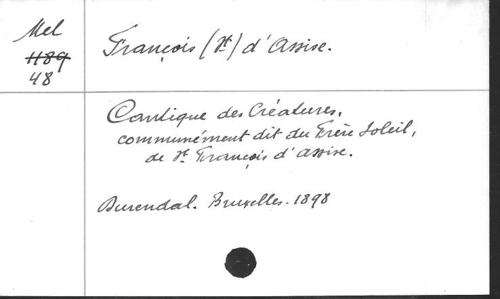 Mel
1189
48
François (St) d'Assise.
Cantique des Créatures,
communément dit du Frère Soleil,
de St François d'Assise.
Durendal. Bruxelles. 1898